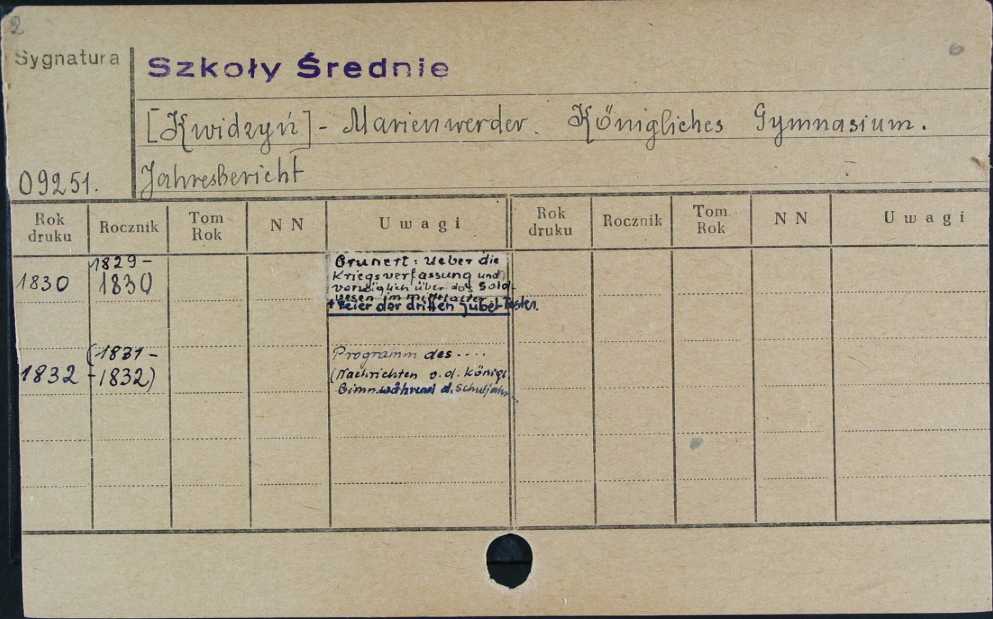 2
6
Sygnatura
Szkoły Średnie
[Kwidzyń] - Marienwerder. Königliches Gymnasium.
09251.
Jahresbericht
Rok druku Rocznik Tom Rok N N Uwagi Rok druku Rocznik Tom Rok N N Uwagi
1830 1829-1830 Grunert: Ueber die
Kriegsverfassung und
vorzüglich über das Sold-
wesen im Mittelalter
+ Feier der dritten Jubel-Festes.
1832 (1831-1832) Programm des....
(Nachrichten o.d. Königl.
Gimn. während d. Schuljahr